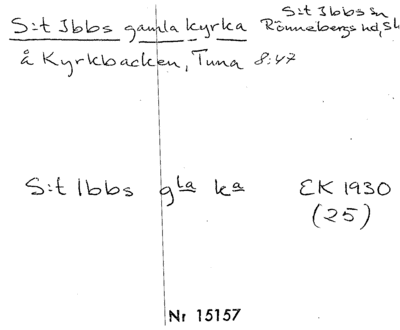 S:t Ibbs gamla kyrka
S:t Ibbs sn
Rönnebergs hd, Sk
å Kyrkbacken, Tuna 8:47
S:t Ibbs gla ka
EK 1930
(25)
Nr 15157